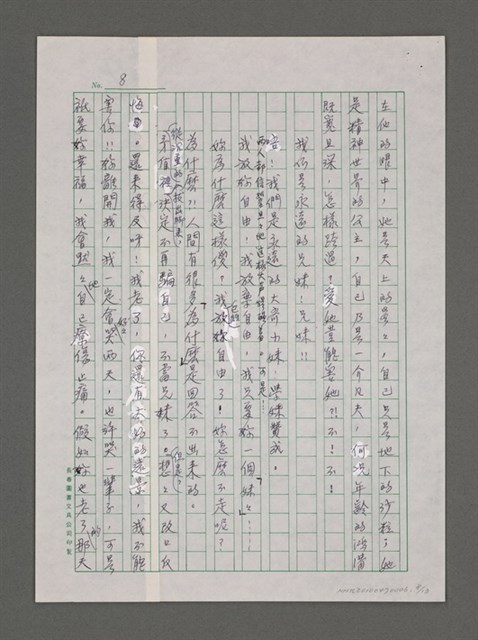 No. 8
在他的眼中，她是天上的星星，自己只是地下的沙粒；她
是精神世界的公主，自己乃是一介凡夫，何況年齡的鴻溝
既寬且深，怎樣跨過？愛她豈能害她？！不！不！
我們是永遠的兄妹！兄妹！！
我們是永遠的大哥小妹，
兩人都信誓旦旦地這樣大聲
可是！
我放妳自由，我放棄自由，我只要妳一個妹妹……
妳為什麼這樣傻？我放妳自由了！妳怎麼不走呢？
為什麼？！人間有很多「為什麼」是回答不出來的。
決定不再騙自己，不當兄妹了。想想又改口反
悔。還來得及呀！我老了，你還有大好的遠景，我不能
害你！！妳離開我，我一定會哭兩天，也許哭一輩子，可是
祇要妳幸福，我會默默地自己療傷止痛。假如妳也老了的那天
長春圖書文具公司印製